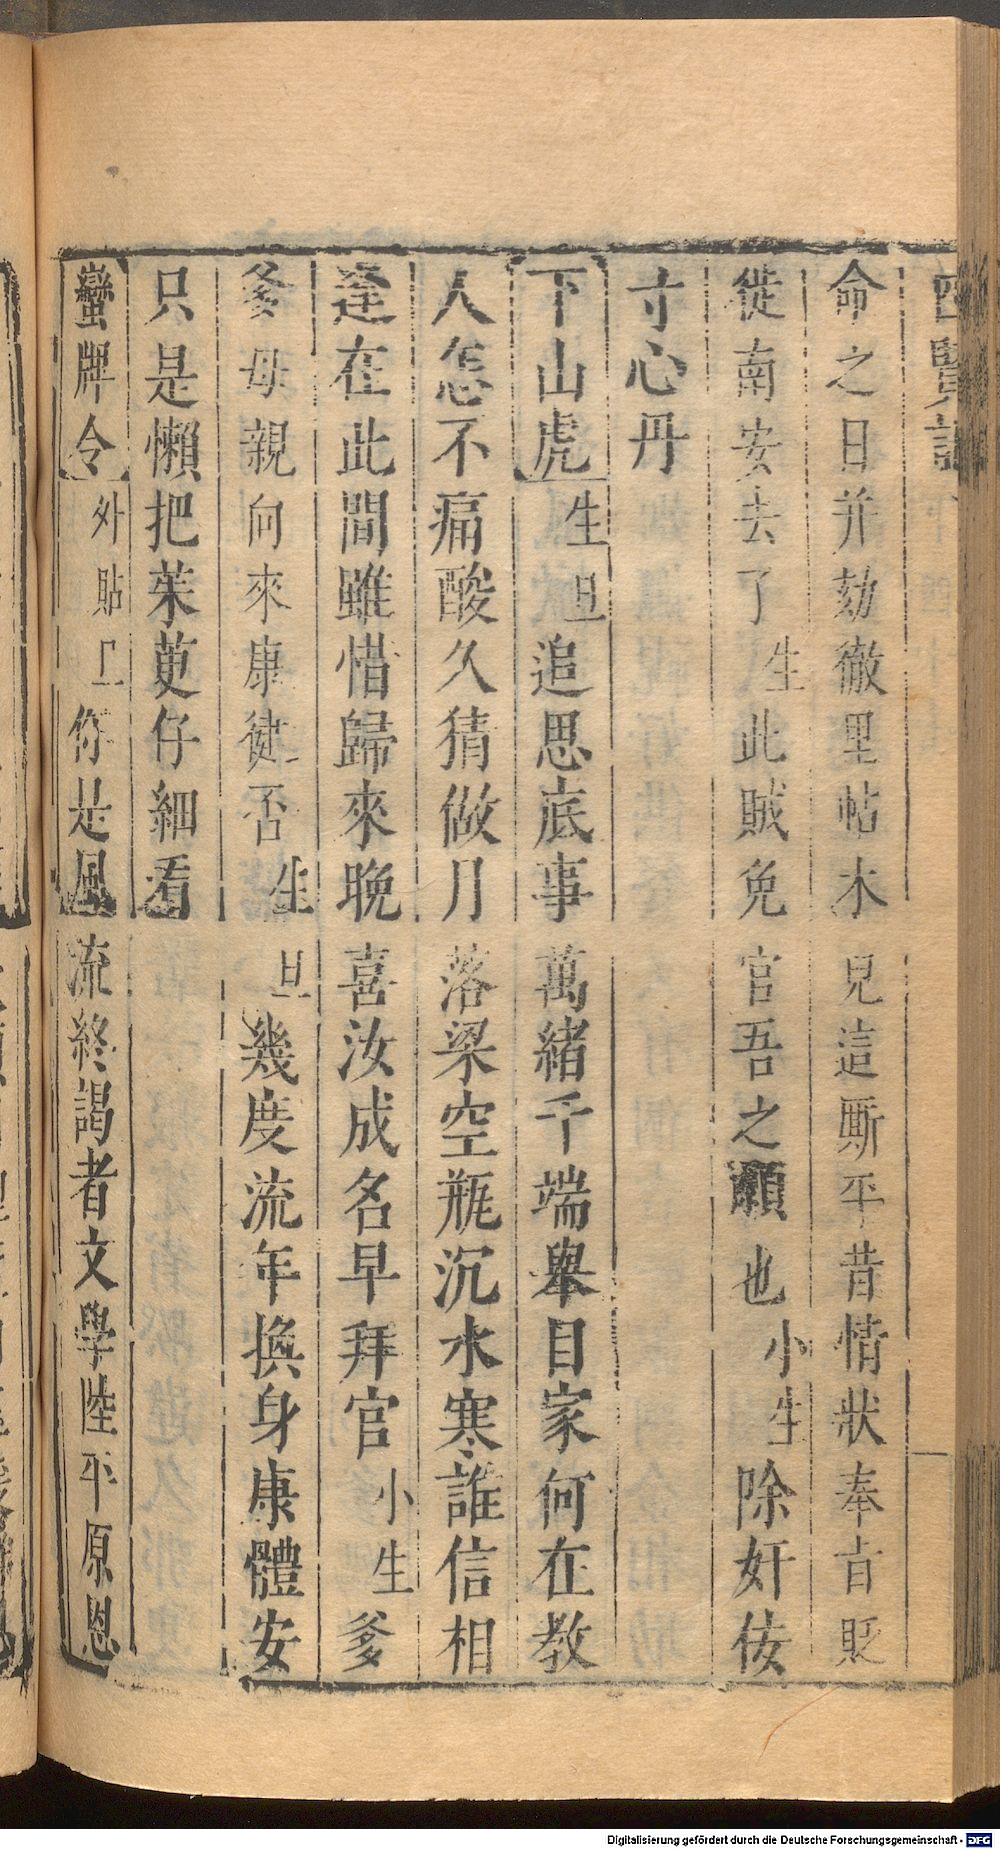 四賢記
命之日并劾徹里帖木兒這厮平昔情狀奉旨貶
徙南安去了生此賊免官吾之願也小生除奸佞
寸心丹
下山虎生旦追思底事萬緒千端舉目家何在教
人怎不痛酸久猜做月落梁空瓶沉水寒誰信相
逢在此間雖惜歸來晚喜汝成名早拜官小生爹
爹母親向來康健否生旦幾度流年換身康體安
只是懶把茱萸仔細看
蠻牌令外貼上你是風流終謁者文學陸平原恩
Digitalisierung gefördert durch die Deutsche Forschungsgemeinschaft - DFG